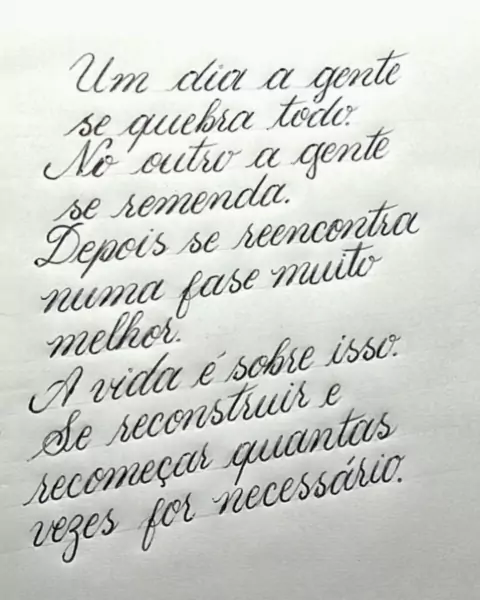 Um dia a gente
se quebra todo.
No outro a gente
se remenda.
Depois se reencontra
numa fase muito
melhor.
A vida é sobre isso.
Se reconstruir e
recomeçar quantas
vezes for necessário.